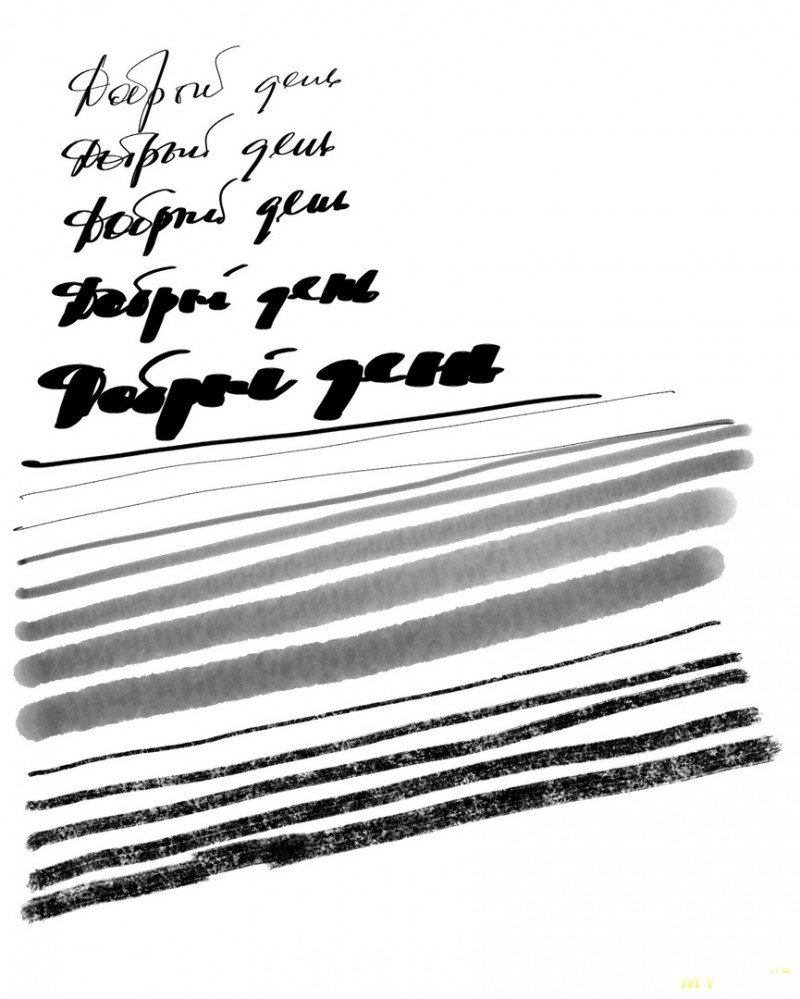 Добрый день
Добрый день
Добрый день
Добрый день
Добрый день
MY
.ru